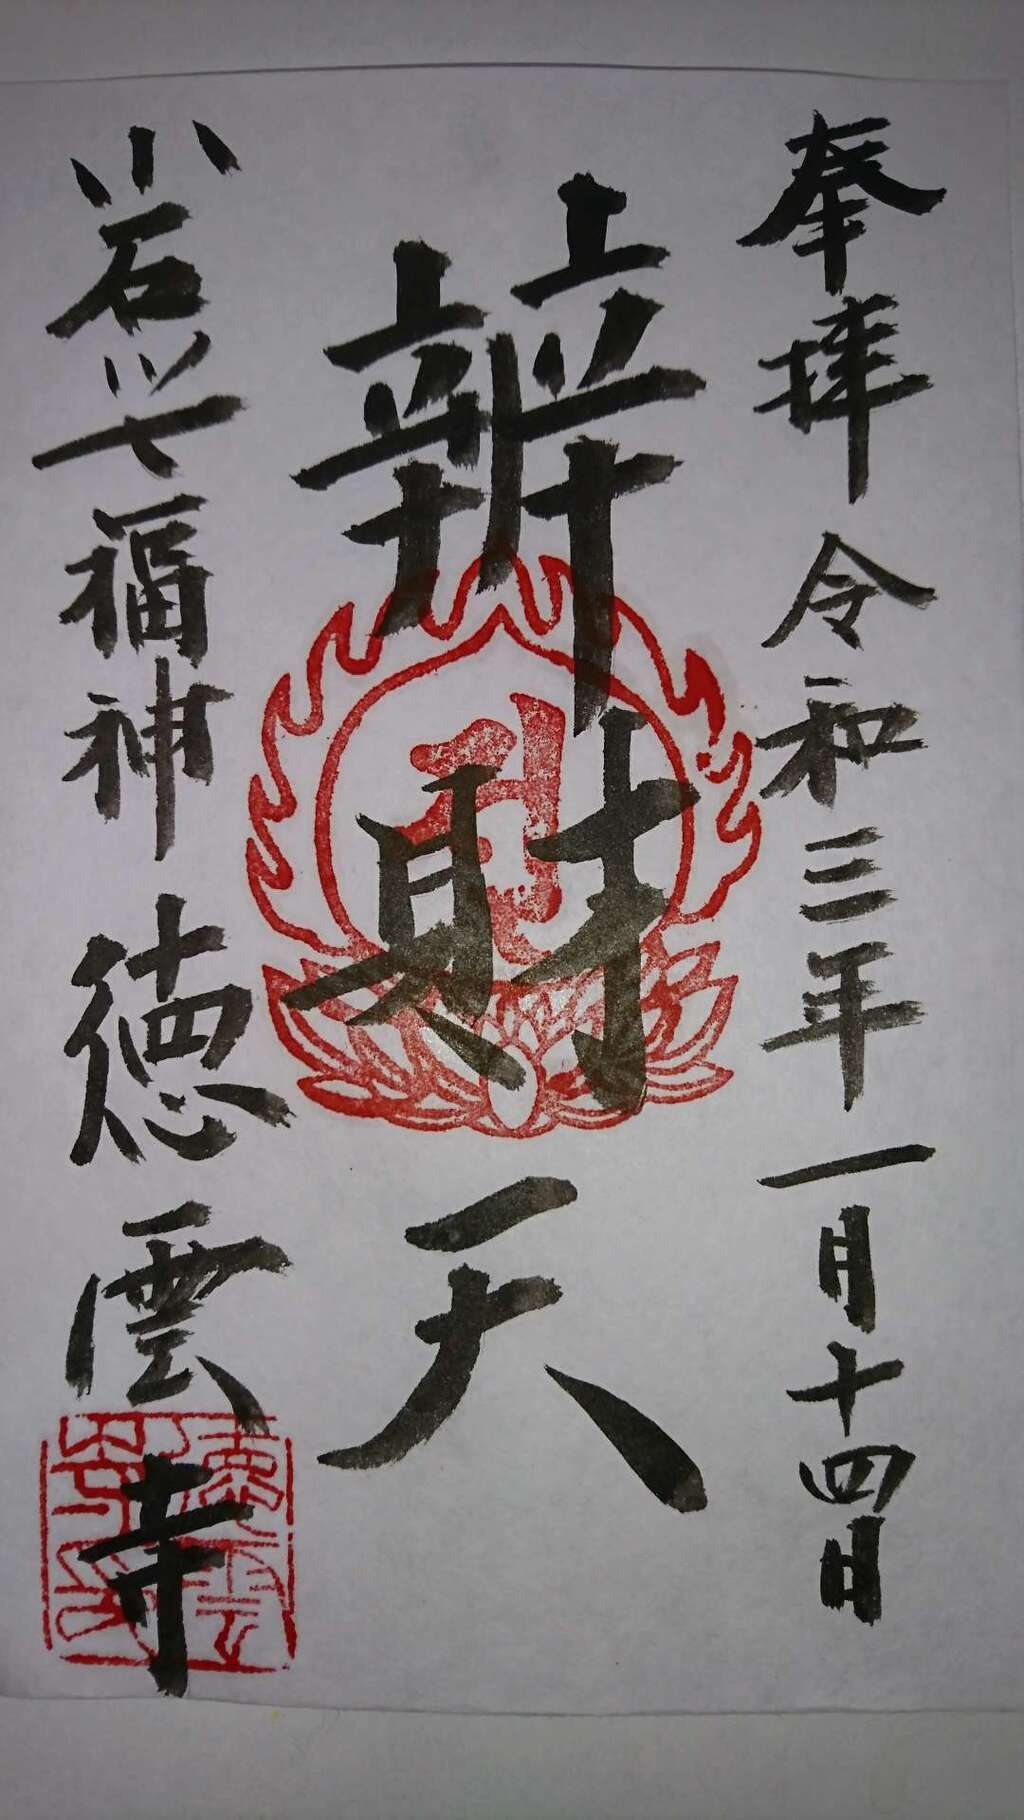 奉拝 令和三年一月十四日
辨財天
小石川七福神 徳雲寺